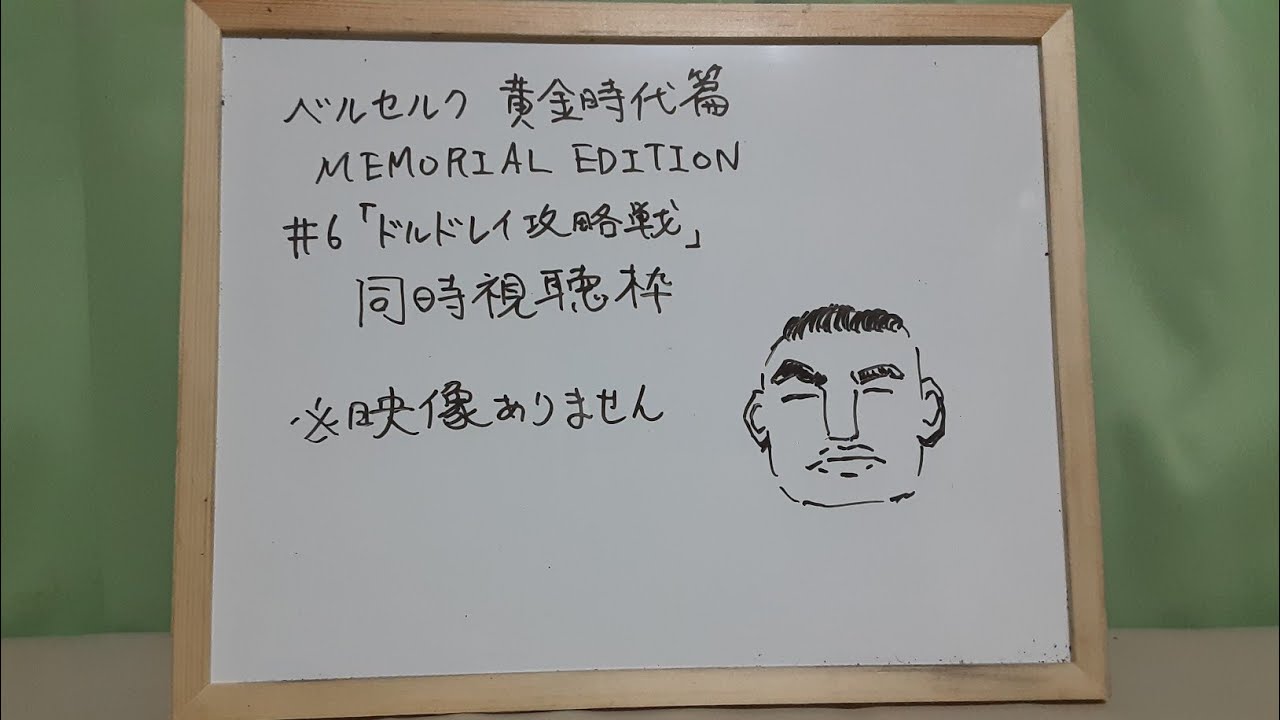 ベルセルク 黄金時代篇
MEMORIAL EDITION
#6「ドルドレイ攻略戦」
同時視聴枠
※映像ありません